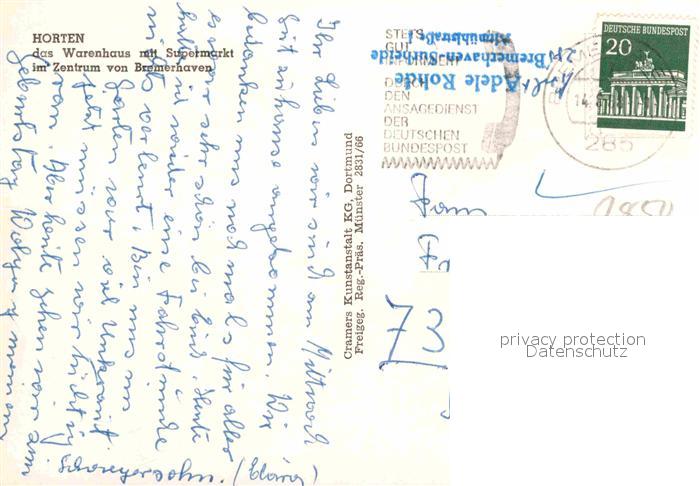 HORTEN
das Warenhaus mit Supermarkt
im Zentrum von Bremerhaven
Ihr Lieben wir sind am Mittwoch
gut zuhause angekommen. Wir
bedanken uns noch mals für alles
es war sehr schön bei Euch. Heute
haben wir wieder eine Fahrstunde
nichts verlernt. Bei uns im
Garten war viel Unkraut
jetzt müssen wir tüchtig
ran. Aber heute gehen wir zum
Geburtstag
Schwiegersohn.
Cramers Kunstanstalt KG, Dortmund
Freigeg. Reg.-Präs. Münster 2831/66
STETS
GUT
INFORMIERT
DURCH
DEN
ANSAGEDIENST
DER
DEUTSCHEN
BUNDESPOST
Adele Rohde
Bremerhaven-Surheide
DEUTSCHE BUNDESPOST
20
285
2850
73
privacy protection
Datenschutz